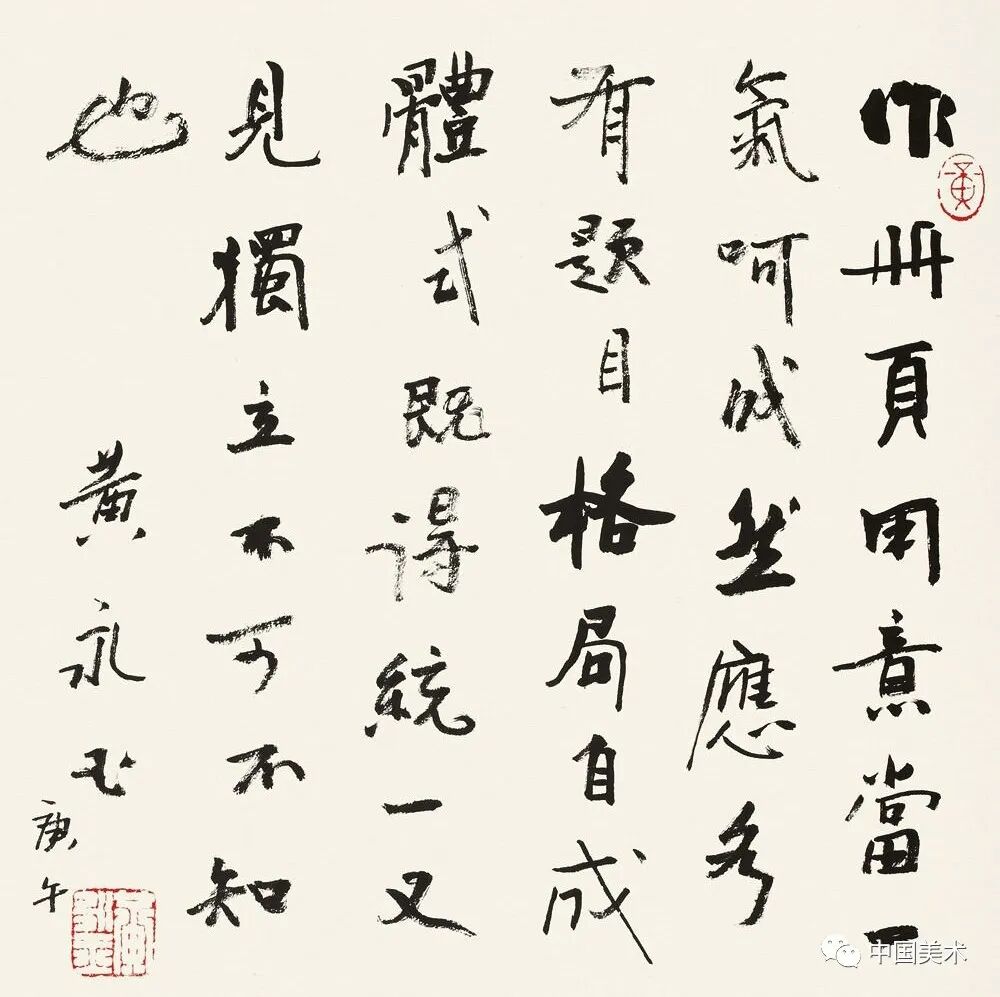 作册頁用意當一
氣呵成然應各
有題目格局自成
體式既得統一又
見獨立不可不知
也
黄永玉
庚午
黄
中国美术